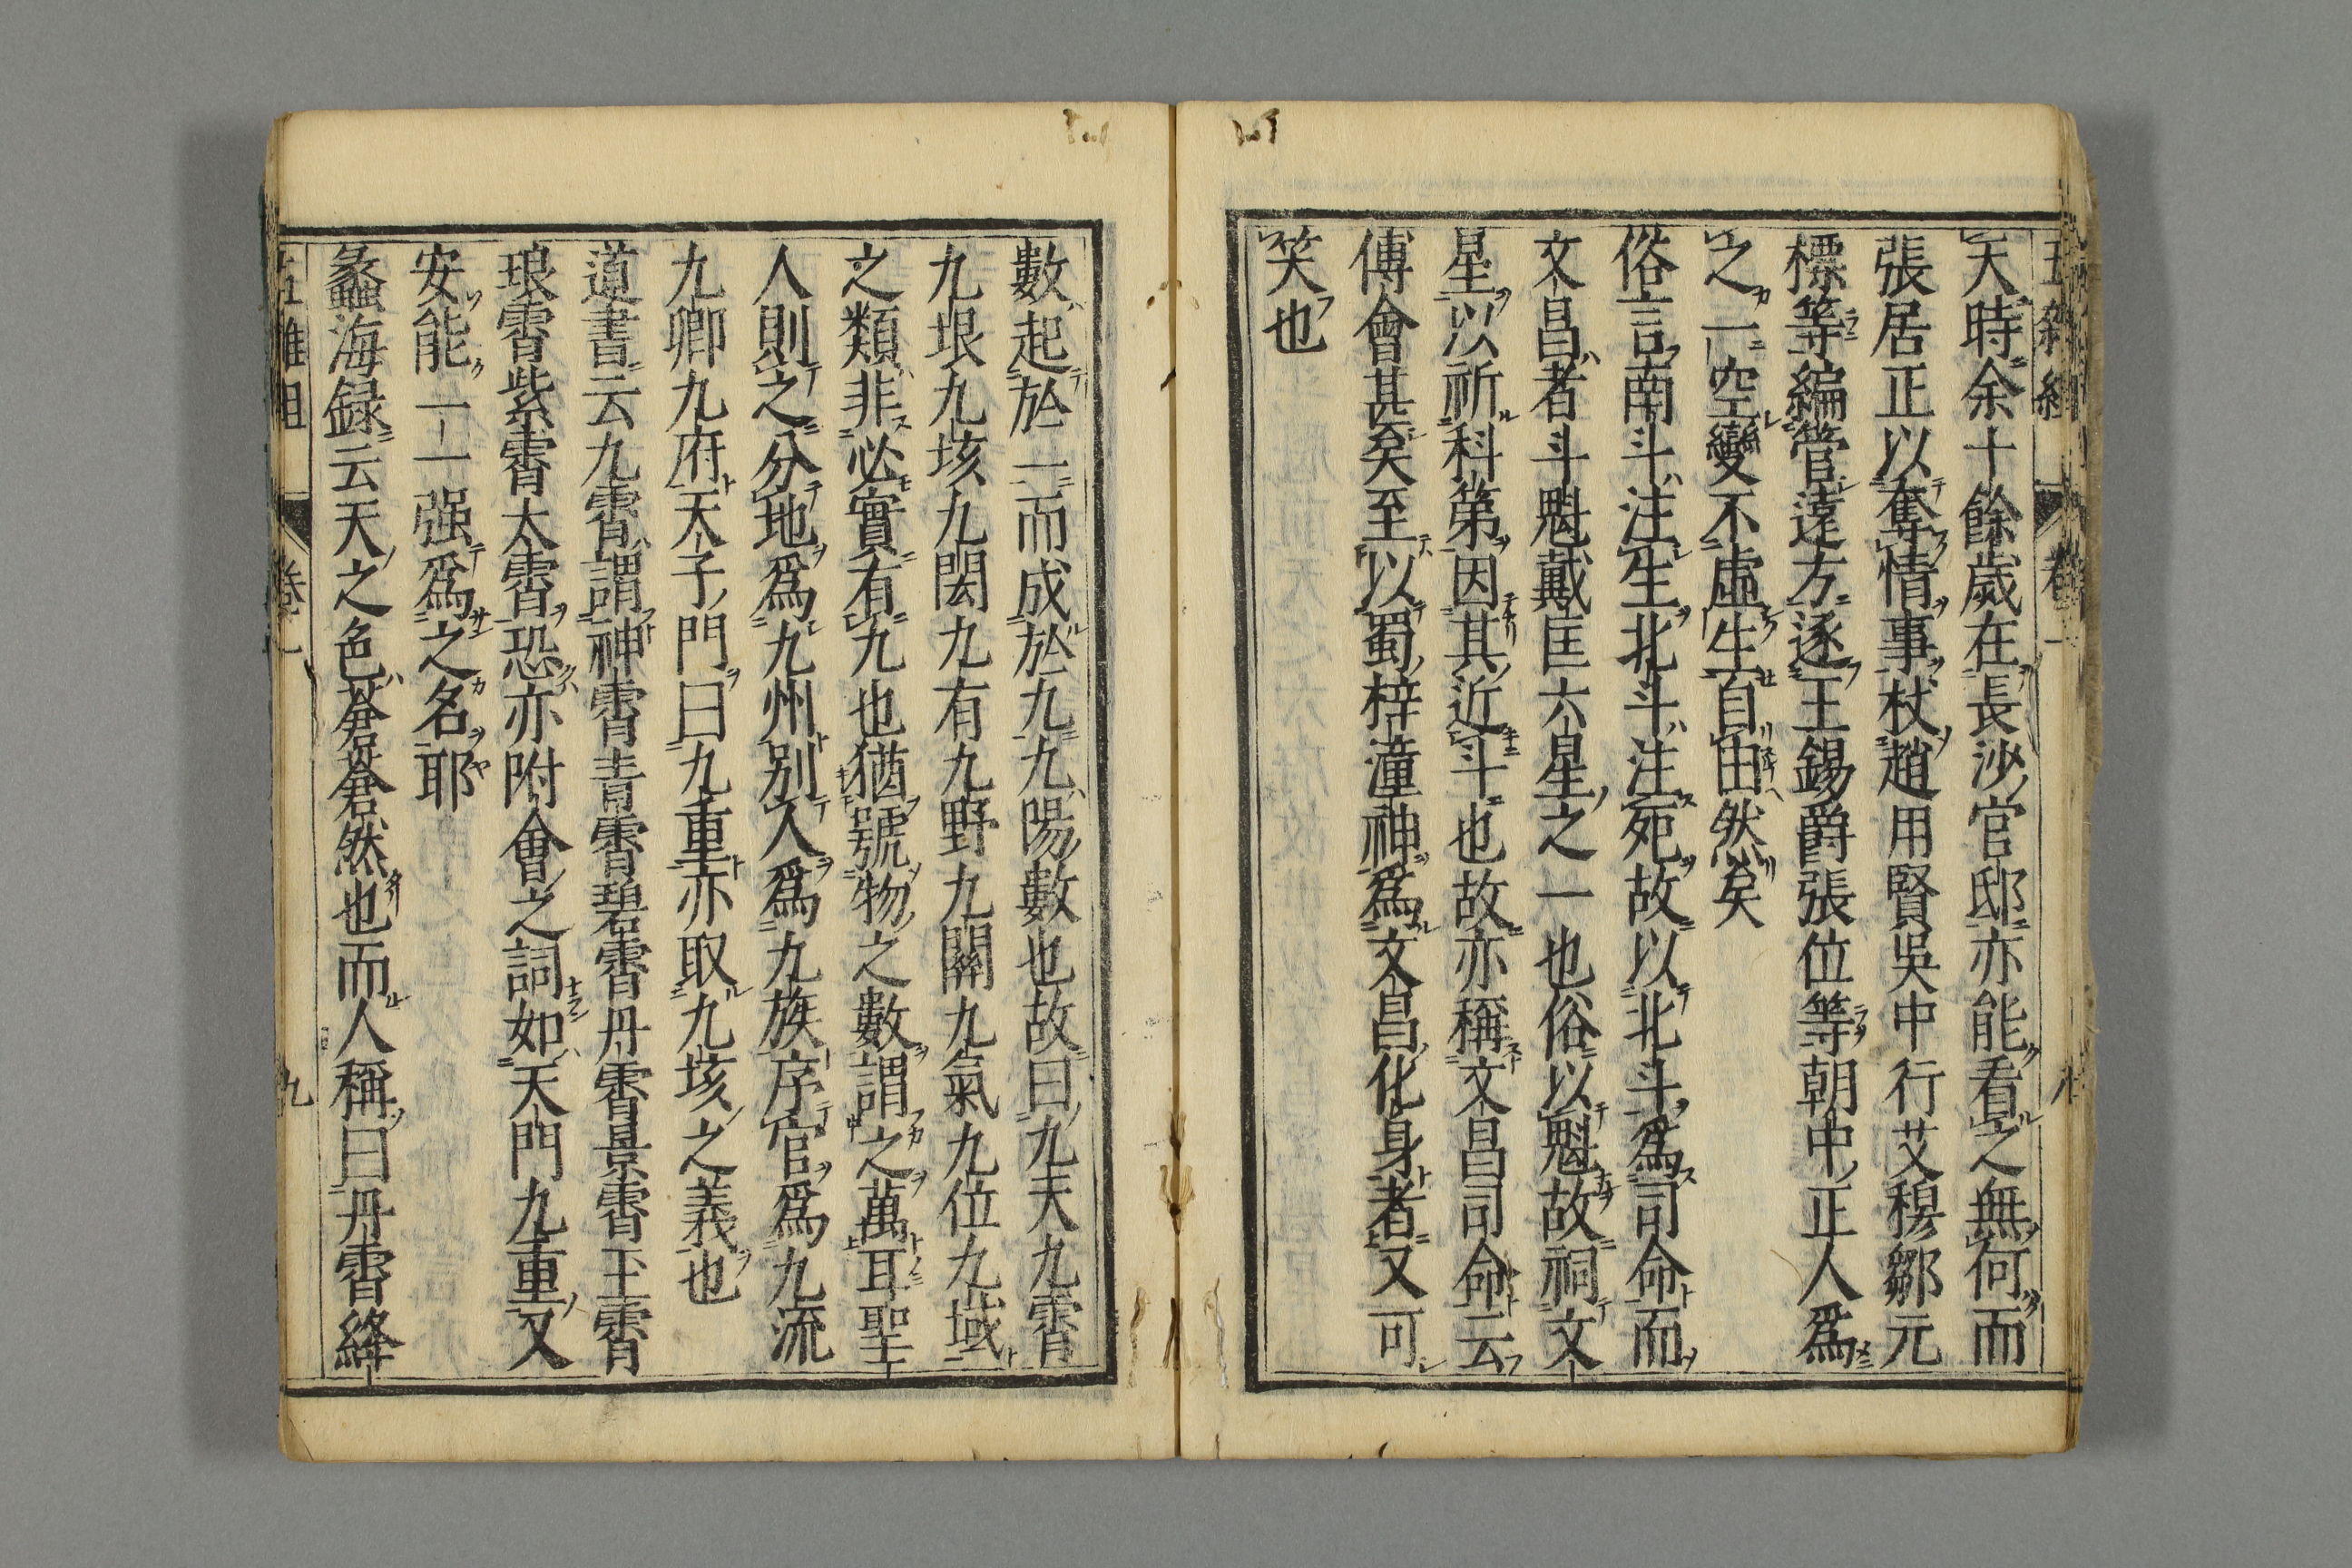 天時余十餘歲在長沙官邸亦能看之無何而
張居正以奪情事杖趙用賢吳中行艾穆鄒元
標等編管遠方逐王錫爵張位等朝中正人爲
之一空變不虛生百由然矣
俗言南斗注生北斗注死故以北斗爲司命而
文昌者斗魁戴匡六星之一也俗以魁故祠文
星以祈科第因其近斗也故亦稱文昌司命云
傅會甚矣至以蜀梓潼神爲文昌化身者又可
笑也
數起於一而成於九九陽數也故曰九天九霄
九垠九垓九閎九有九野九關九氣九位九域
之類非必實有九也猶號物之數謂之萬耳聖
人則之分地爲九州別人爲九族序官爲九流
九卿九府天子門曰九重亦取九垓之義也
道書云九霄謂神霄青霄碧霄丹霄景霄玉霄
琅霄紫霄太霄恐亦附會之詞如天門九重又
安能一一强爲之名耶
蠡海録云天之色蒼蒼然也而人稱曰丹霄絳
五雜組 卷一 九